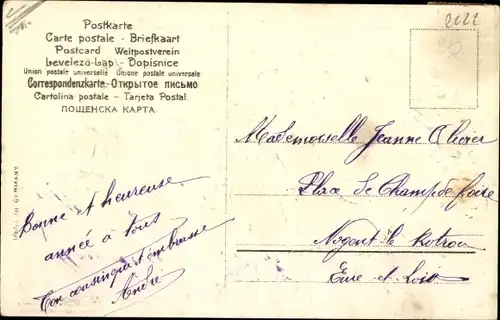 2622
Postkarte
Carte postale - Briefkaart
Postcard Weltpostverein
Levelezö-Lap - Dopisnice
Union postale universelle Unione postale universale
Correspondenzkarte - Открытое письмо
Cartolina postale - Tarjeta Postal
ПОЩЕНСКА КАРТА
Mademoiselle Jeanne Olivier
Place de Champ de foire
Nogent le Rotrou
Eure et Loir
Bonne et heureuse
année à tous
Ton cousin qui t'embrasse
André
IN GERMANY